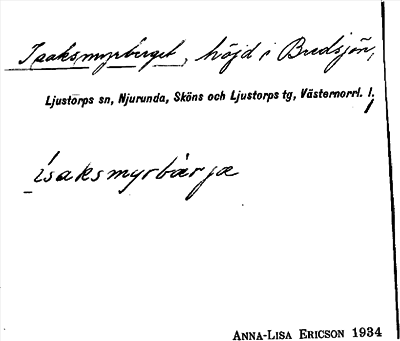 Isaksmyrberget, höjd i Bredsjön,
Ljustorps sn, Njurunda, Sköns och Ljustorps tg, Västernorrl. l.
isaksmyrbærja
ANNA-LISA ERICSON 1934